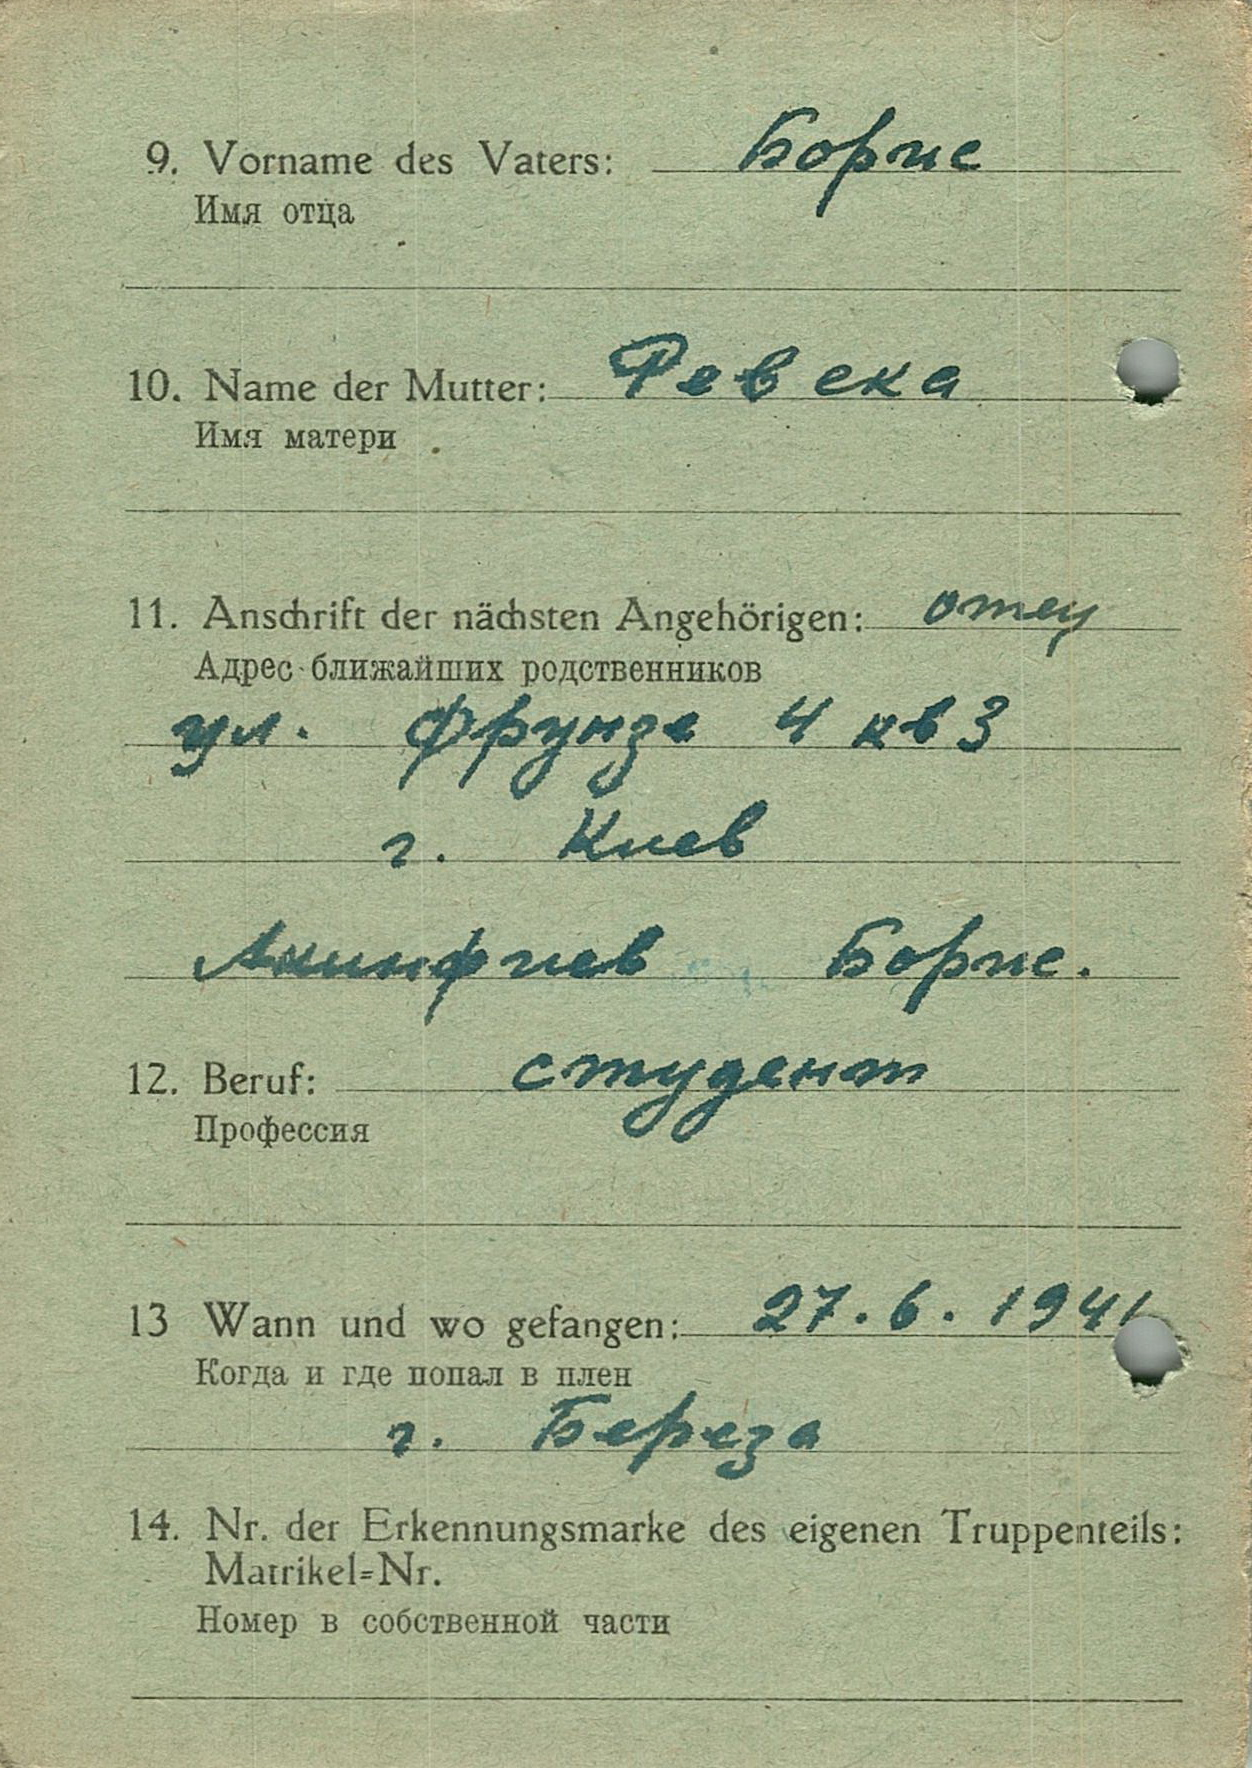 9. Vorname des Vaters: Борис
Имя отца
10. Name der Mutter: Ревека
Имя матери
11. Anschrift der nächsten Angehörigen: отец
Адрес ближайших родственников
ул. Фрунзе 4 кв 3
г. Киев
Акинфиев Борис.
12. Beruf: студент
Профессия
13 Wann und wo gefangen: 27.6.1941
Когда и где попал в плен
г. Береза
14. Nr. der Erkennungsmarke des eigenen Truppenteils:
Matrikel=Nr.
Номер в собственной части